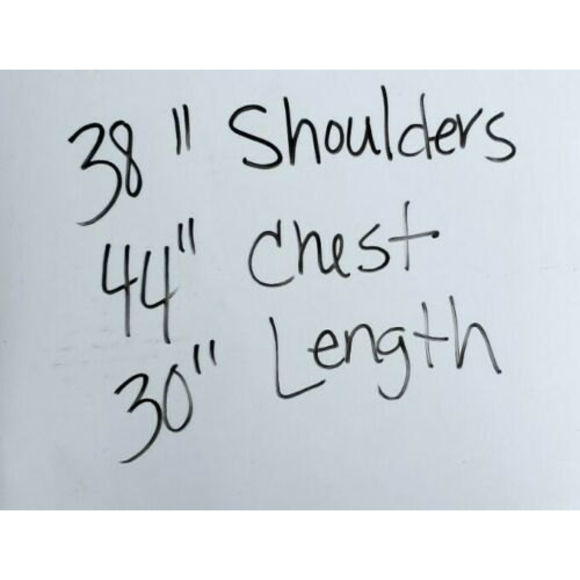 38" Shoulders
44" Chest
30" Length